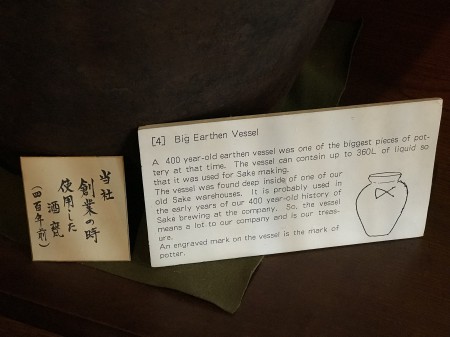 当社
創業の時
使用した
酒甕
(四百年前)
[4] Big Earthen Vessel
A 400 year-old earthen vessel was one of the biggest pieces of pot-
tery at that time. The vessel can contain up to 360L of liquid so
that it was used for Sake making.
The vessel was found deep inside of one of our
old Sake warehouses. It is probably used in
the early years of our 400 year-old history of
Sake brewing at the company. So, the vessel
means a lot to our company and is our treas-
ure.
An engraved mark on the vessel is the mark of
potter.